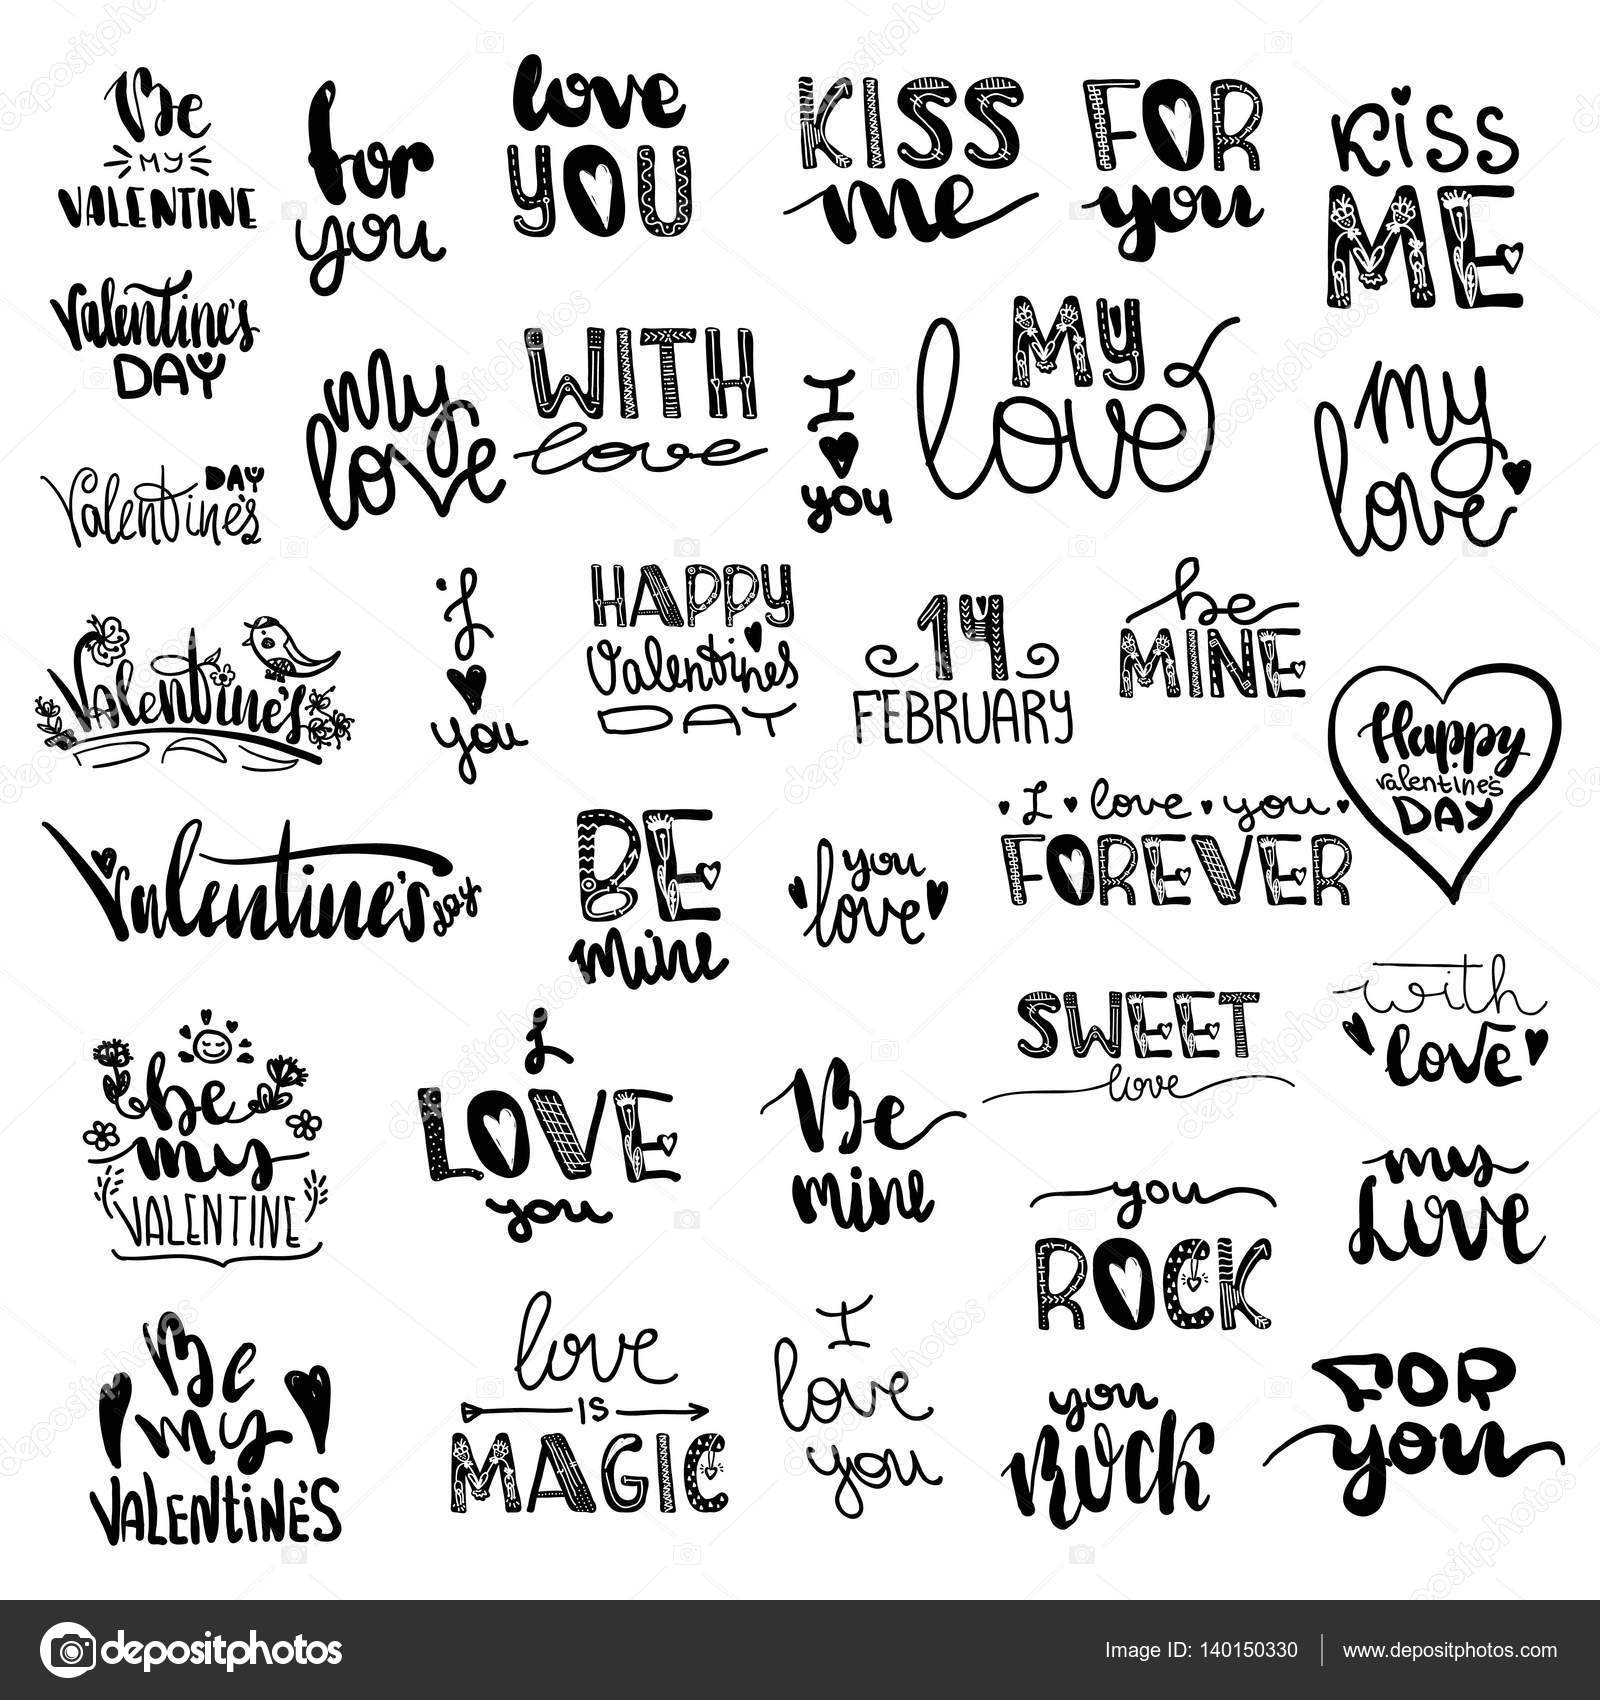 Be
MY
VALENTINE
for
you
love
YOU
KISS
me
FOR
you
KISS
ME
Valentine's
DAY
my
love
WITH
love
I
you
MY
love
my
love
DAY
Valentine's
Valentine's
DAY
I
you
HAPPY
Valentine's
DAY
14
FEBRUARY
be
MINE
Happy
valentine's
DAY
Valentine's
day
BE
mine
you
love
I love you
FOREVER
be
my
VALENTINE
I
LOVE
you
Be
mine
SWEET
love
with
love
you
ROCK
my
Love
Be
my
VALENTINE'S
love
IS
MAGIC
I
love
you
you
Rock
FOR
you
depositphotos
Image ID: 140150330
www.depositphotos.com